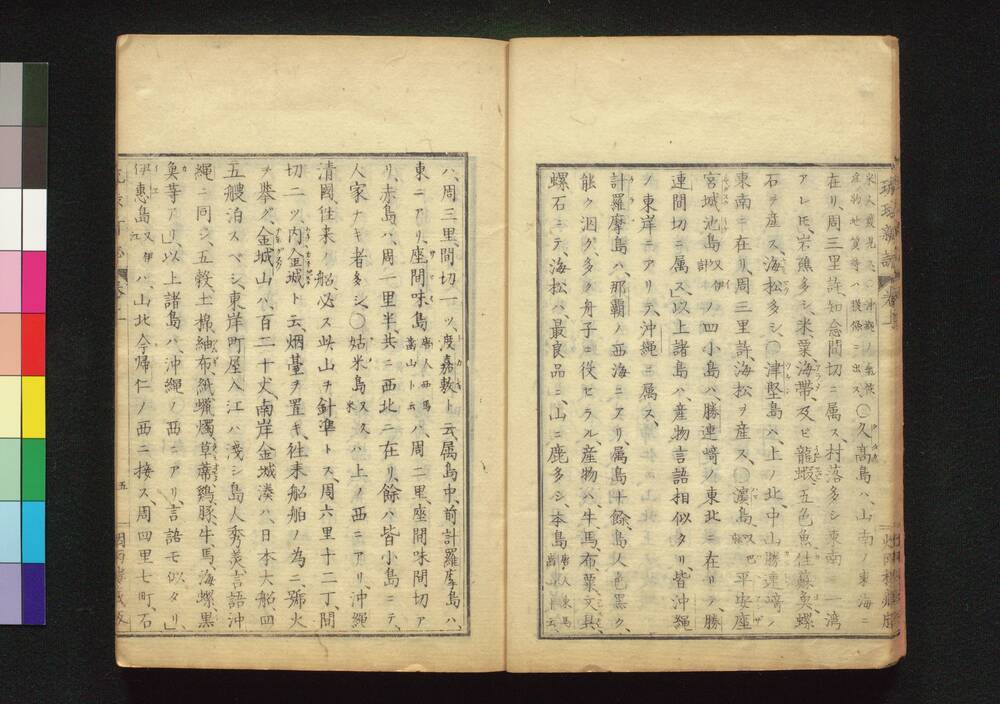 ○久高島ハ、山南ノ東海ニ
在リ、周三里許、知念間切ニ属ス、村落多シ、東南ニ一湾
アレ𪜈、岩礁多シ、米粟、海帯、及ビ龍蝦、五色魚、佳蘇魚、螺
石ヲ産ス、海松多シ、○津堅島ハ、上ノ北、中山勝連﨑ノ
東南ニ在リ、周三里許、海松ヲ産ス、○濵島、平安座
宮城池島又伊計ノ四小島ハ、勝連﨑ノ東北ニ在リテ、勝
連間切ニ属ス」以上諸島ハ、産物言語相似タリ、皆沖縄
ノ東岸ニアリテ、沖縄ニ属ス、
計羅摩島ハ、那覇ノ西海ニアリ、属島十餘、島人色黒ク、
能ク泅グ、多ク舟子ニ役セラル、産物ハ、牛馬布粟文具、
螺石ニテ、海松ハ、最良品ニ、山ニ鹿多シ、本島唐人東馬歯山ト云、
ハ、周三里、間切一ツ、渡嘉敷ト云、属島中、前計羅摩島ハ、
東ニアリ、座間味島唐人西馬歯山ト云ハ、周二里、座間味間切ア
リ、赤島ハ、周一里半、共ニ西北ニ在リ、餘ハ皆小島ニテ、
人家ナキ者多シ、○姑米島ハ上ノ西ニアリ、沖縄
清國往来ノ船、必ス此山ヲ針準トス、周六里十二丁、間
切二ツ、内金城ト云、烟臺ヲ置キ、往来船舶ノ為ニ、號火
ヲ挙グ、金城山ハ、百二十丈、南岸金城湊ハ、日本大船四
五艘泊スベシ、東岸町屋入江ハ淺シ、島人秀美、言語沖
縄ニ同シ、五穀、土棉、紬布、紙蠟燭、草蓆、鷄、豚、牛馬、海螺、黒
魚等アリ」以上諸島ハ、沖縄ノ西ニアリ、言語モ似タリ」
伊惠島又伊江ハ、山北今帰仁ノ西ニ接ス、周四里七町、石
五